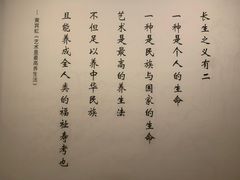 长生之义有二
一种是个人的生命
一种是民族与国家的生命
艺术是最高的养生法
不但足以养中华民族
且能养成全人类的福祉寿考也
—黄宾虹《艺术是最高养生法》